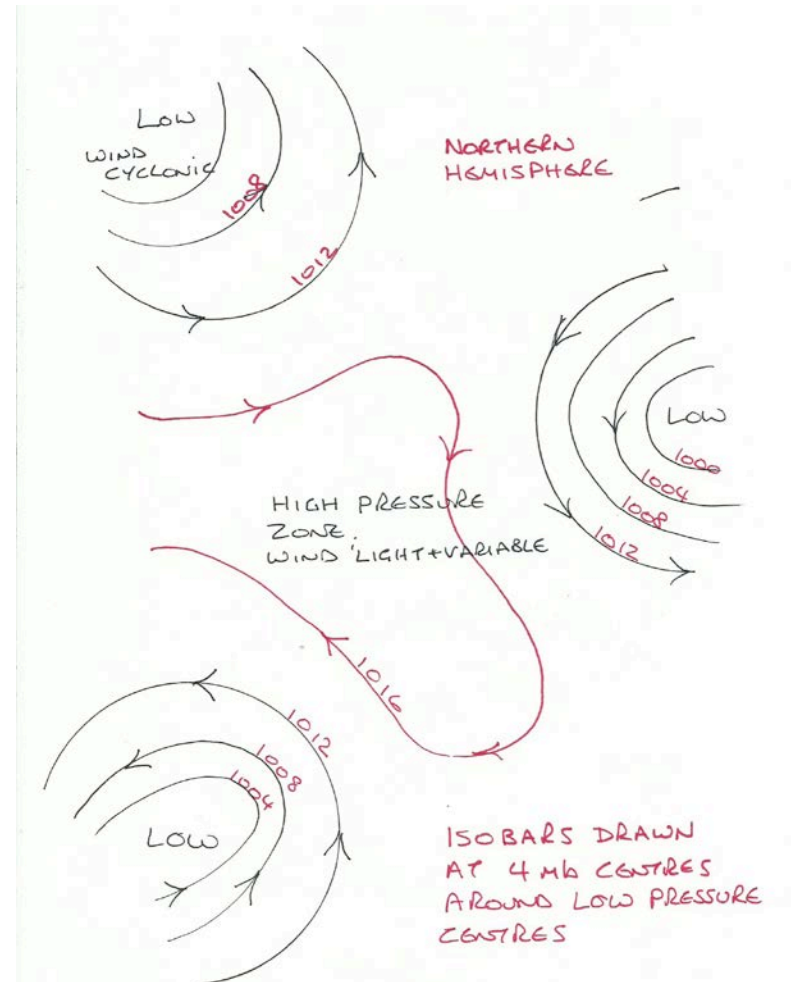 LOW
WIND
CYCLONIC
1008
1012
NORTHERN
HEMISPHERE
LOW
1000
1004
1008
1012
HIGH PRESSURE
ZONE.
WIND 'LIGHT+VARIABLE
1016
1012
1008
1004
LOW
ISOBARS DRAWN
AT 4 Mb CENTRES
AROUND LOW PRESSURE
CENTRES